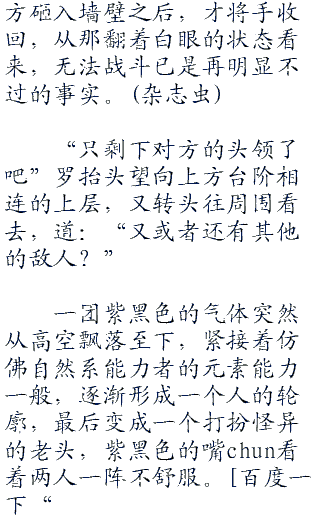 方砸入墙壁之后，才将手收
回，从那翻着白眼的状态看
来，无法战斗已是再明显不
过的事实。(杂志虫)
“只剩下对方的头领了
吧”罗抬头望向上方台阶相
连的上层，又转头往周围看
去，道：“又或者还有其他
的敌人？”
一团紫黑色的气体突然
从高空飘落至下，紧接着仿
佛自然系能力者的元素能力
一般，逐渐形成一个人的轮
廓，最后变成一个打扮怪异
的老头，紫黑色的嘴chun看
着两人一阵不舒服。[百度一
下“